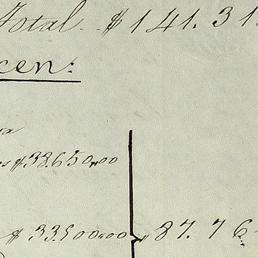 Total. $141.31
cen:
$38.650,00
$33,500,00 $87.76